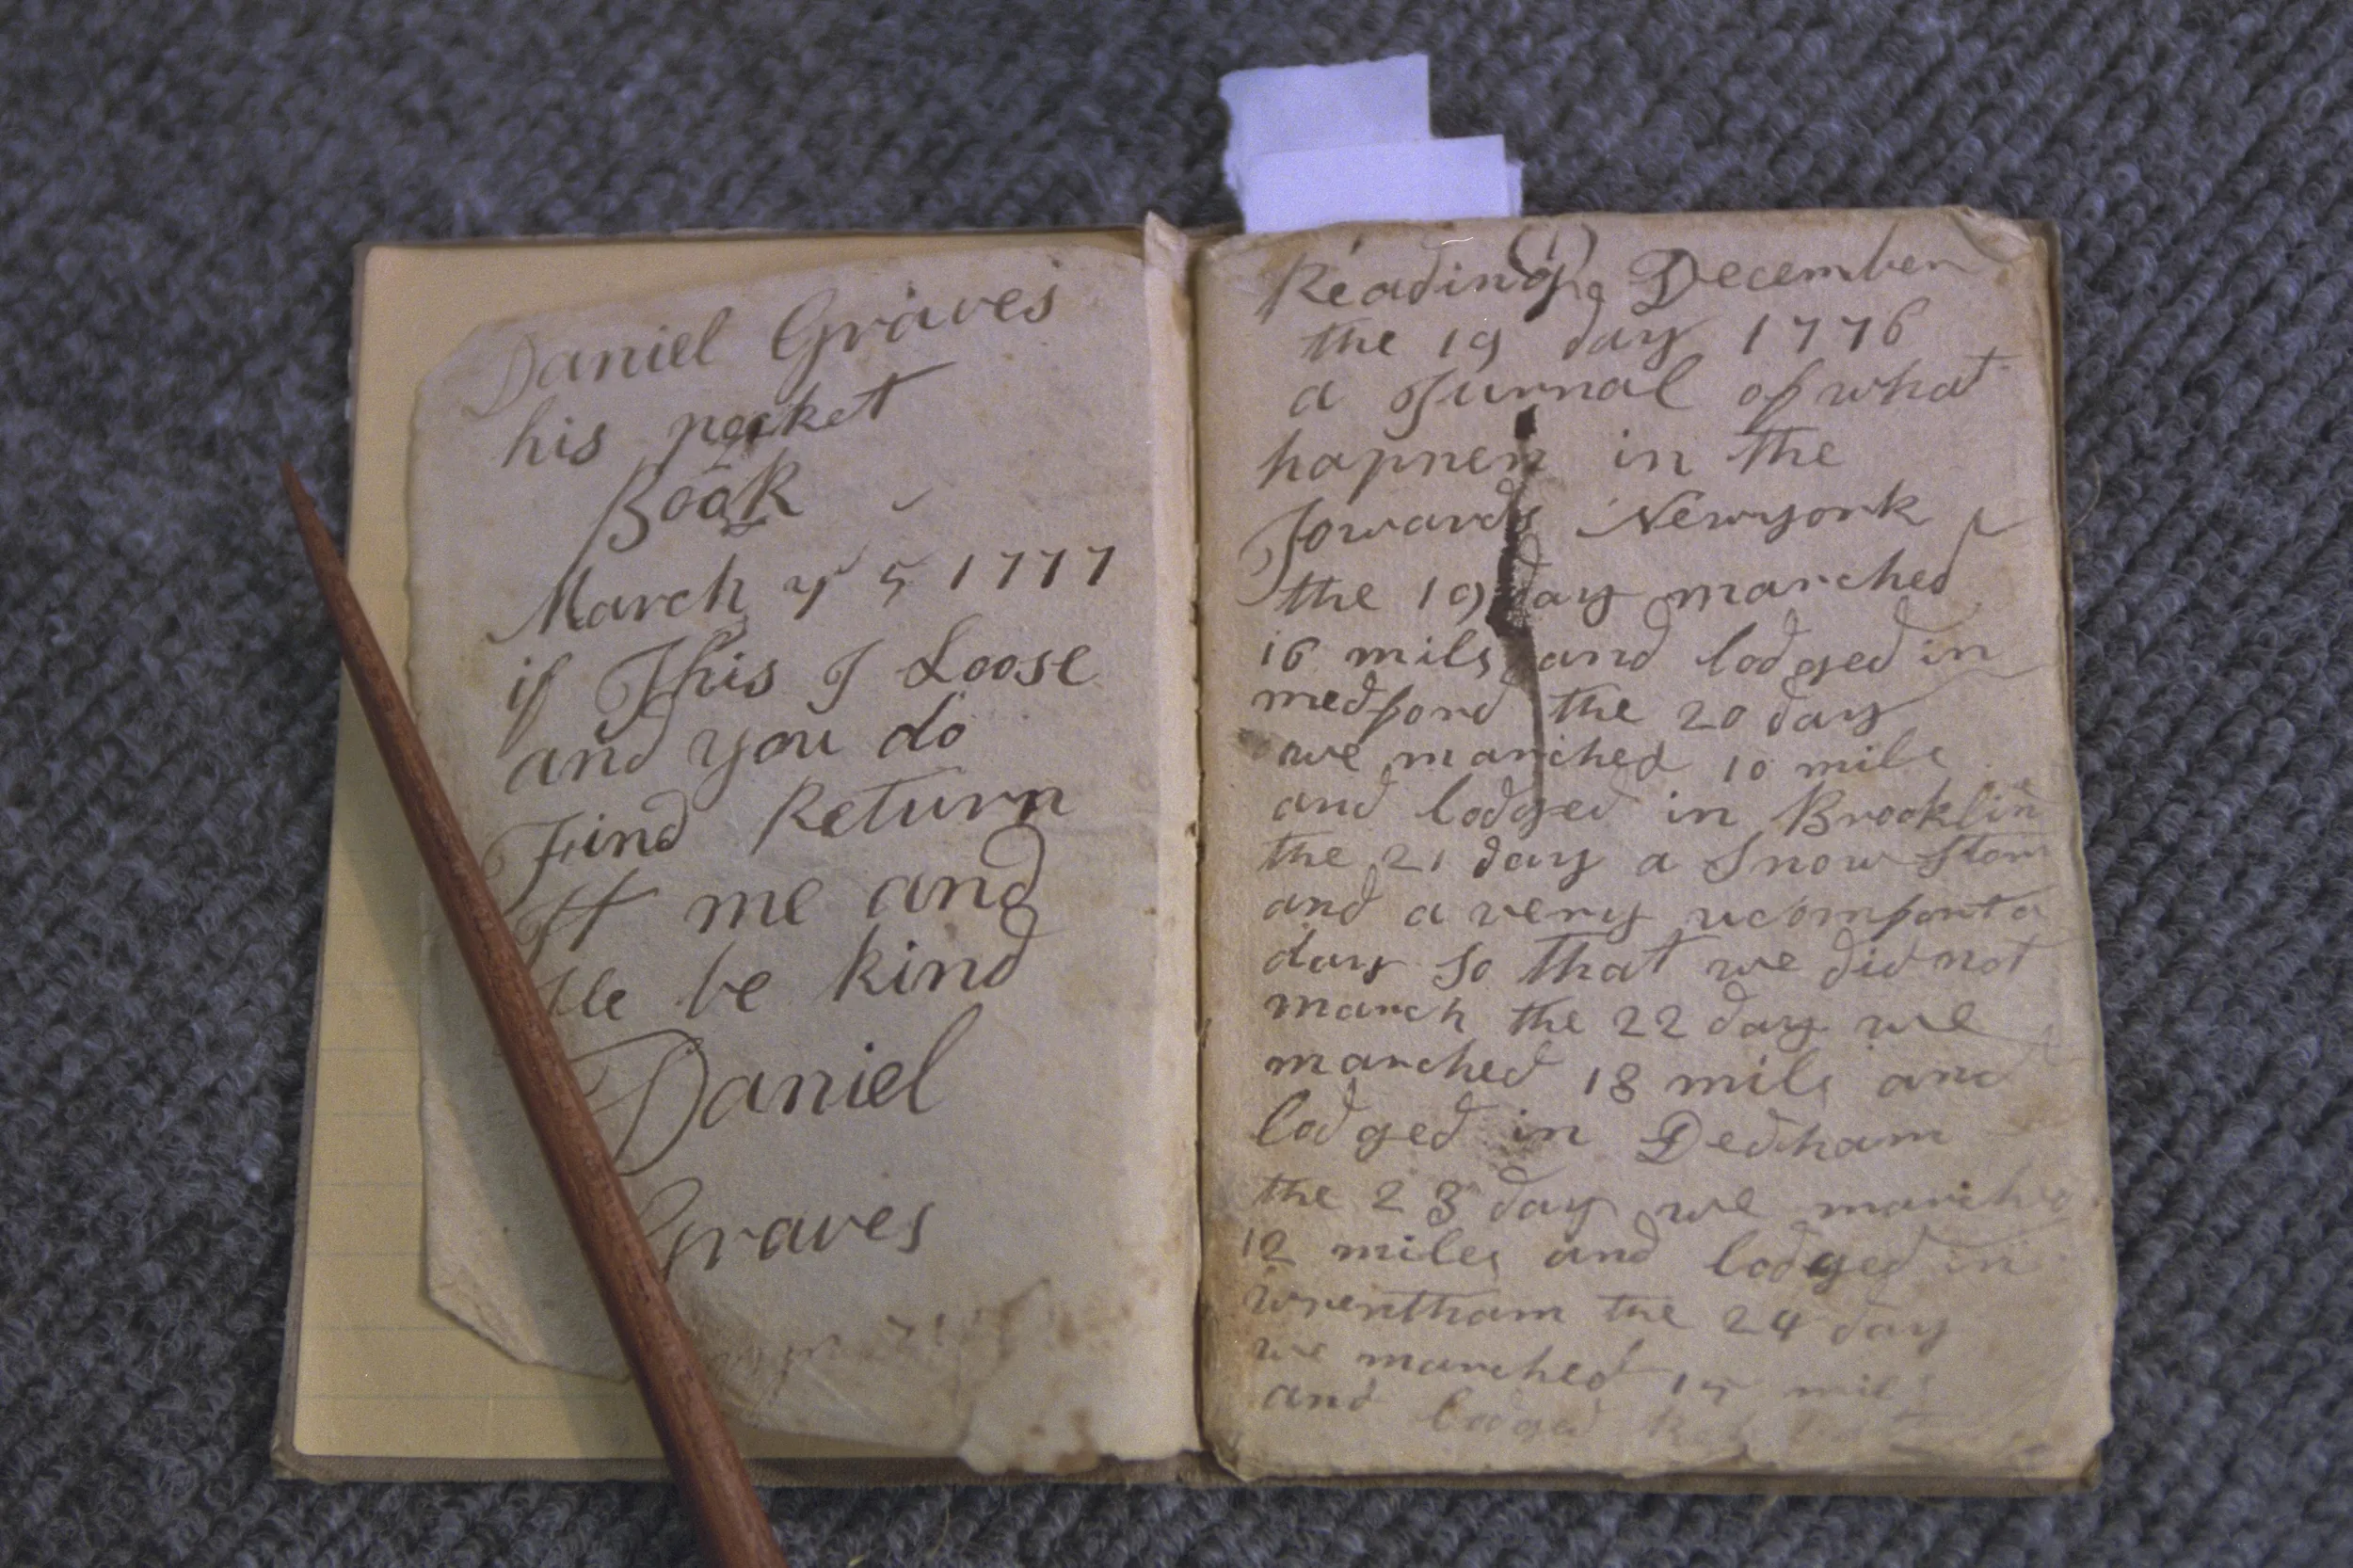 Daniel Graves
his pocket
Book
March ye 5 1777
if This I Loose
and you do
Find Return
It me and
Ile be kind
Daniel
Graves
Reading December
the 19 day 1776
a Jurnal of what
happen in the
Towards Newyork
the 19 day marched
16 mils and lodged in
medford the 20 day
we marched 10 mile
and lodged in Brooklin
the 21 day a Snow Storm
and a very ucomforta
day so that we did not
march the 22 day we
marched 18 mils and
lodged in Dedham
the 23 day we marched
12 miles and lodged in
wrentham the 24 day
we marched 15 mil
and lodged